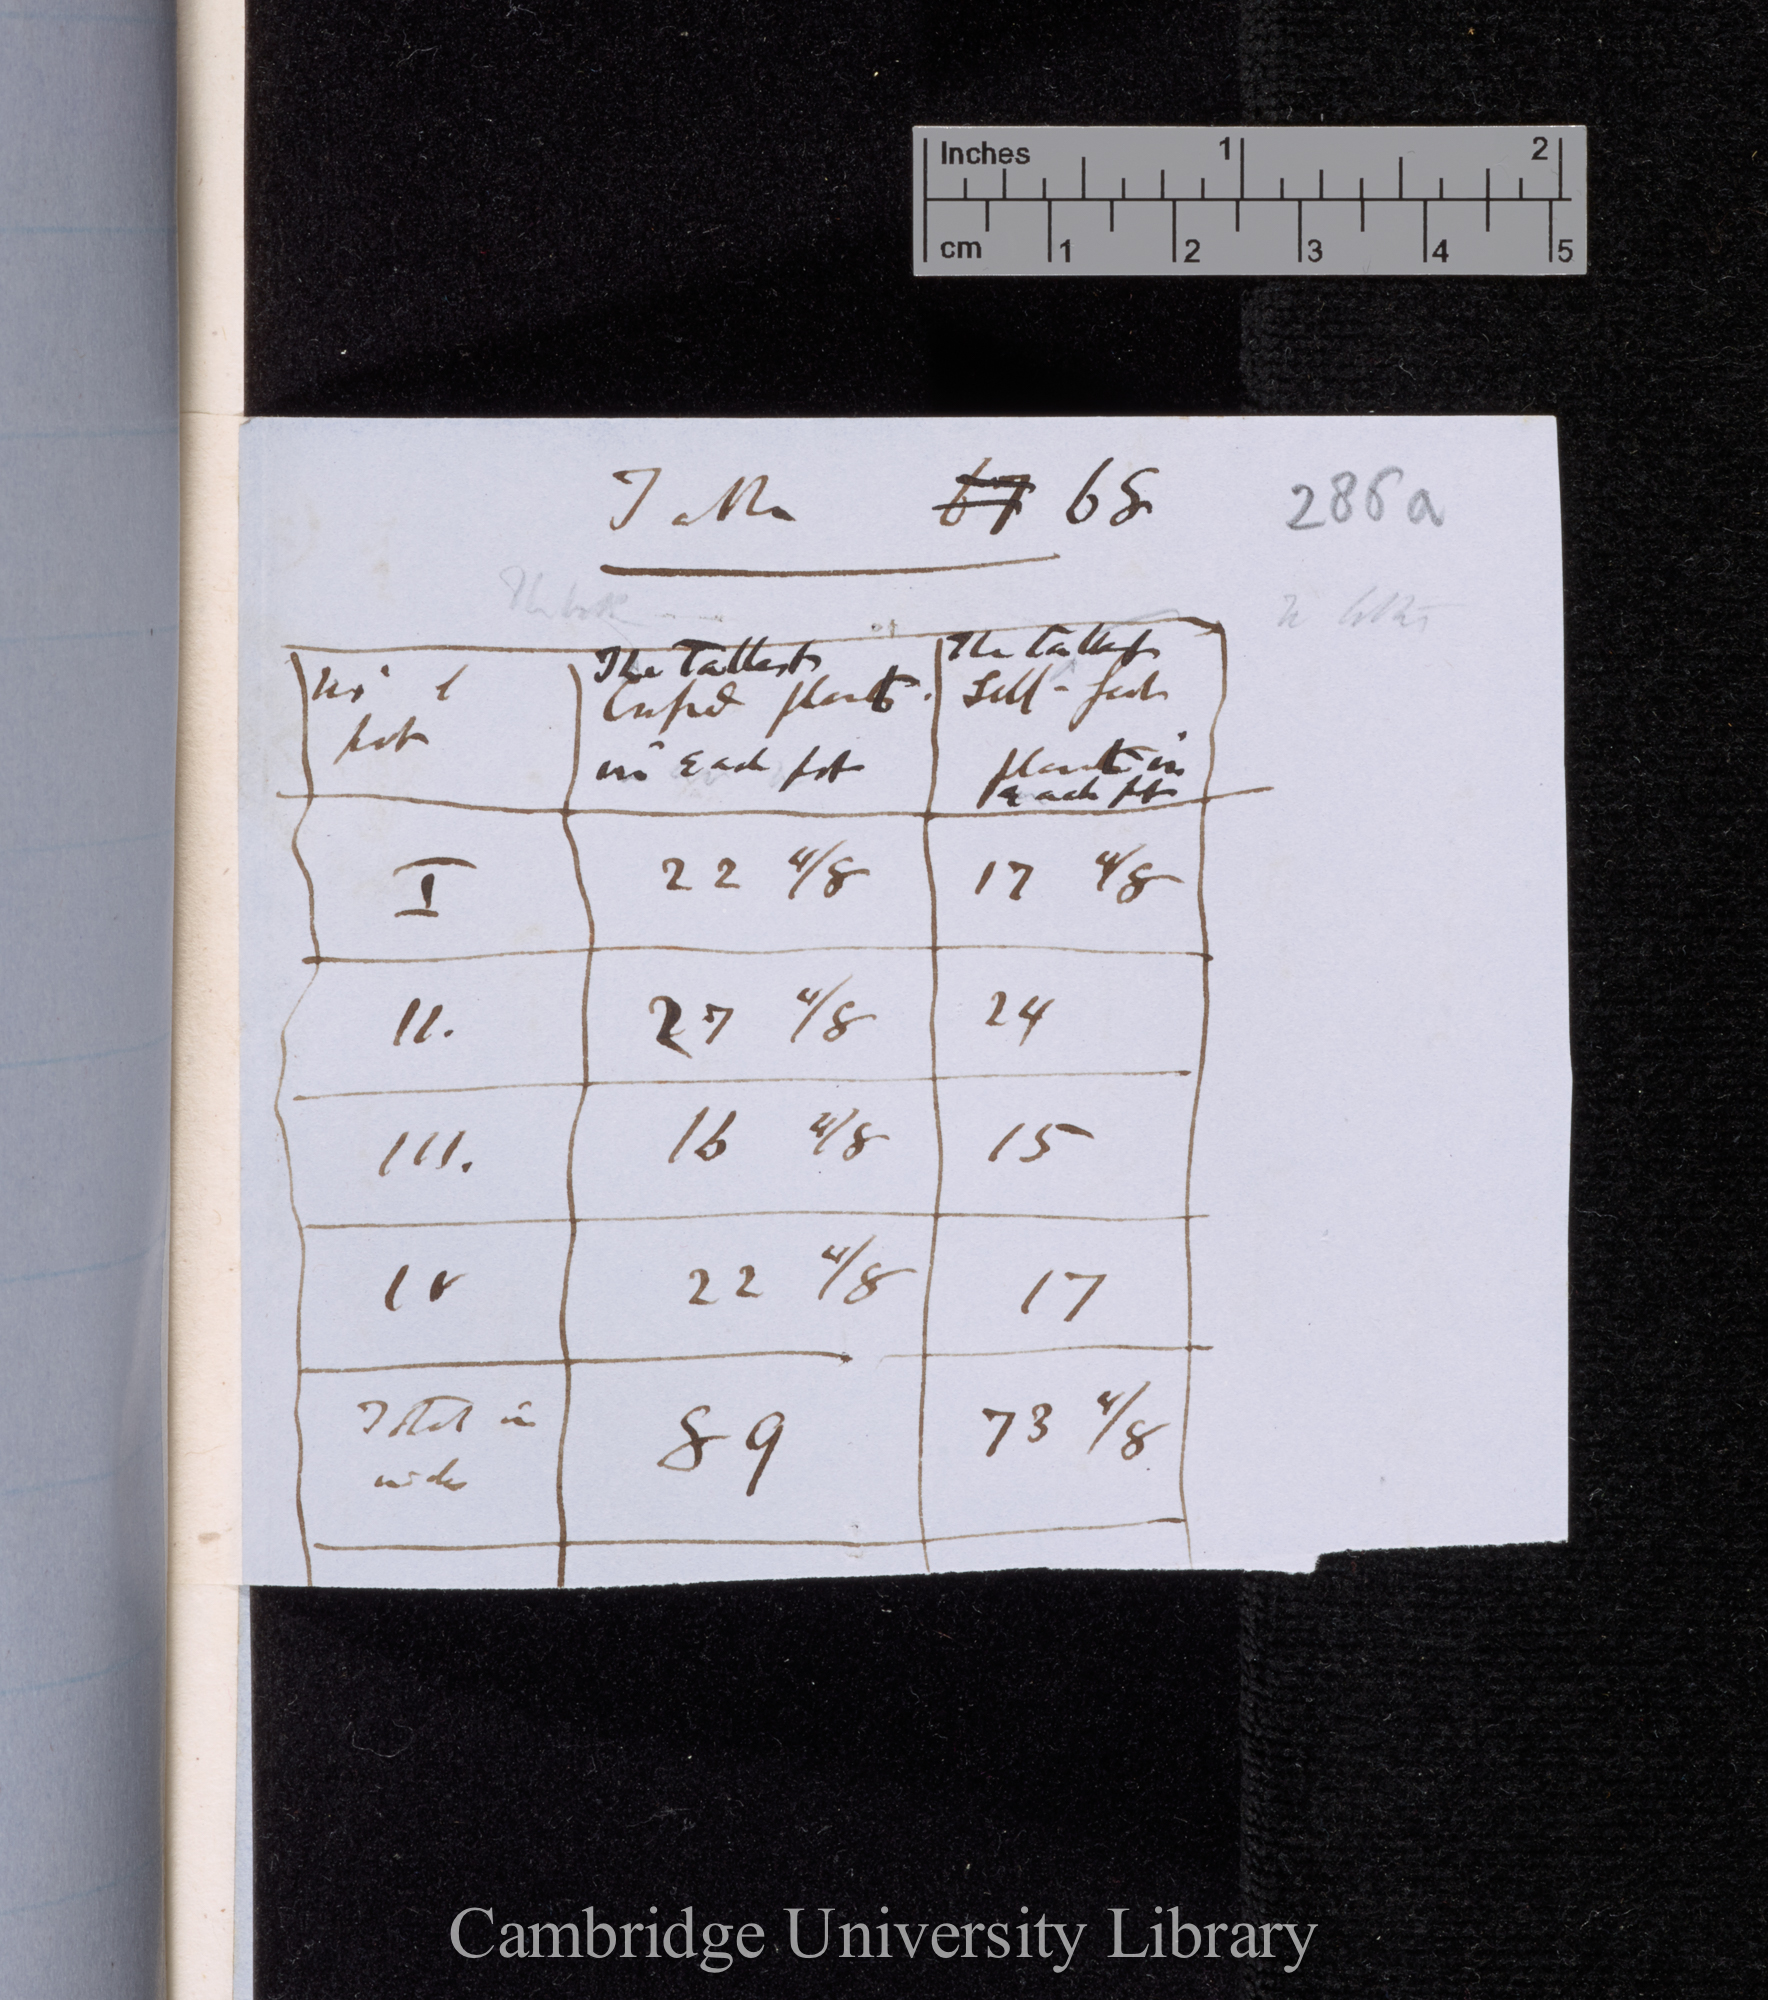 Inches 1 2
cm 1 2 3 4 5
Table 67 68 286a
No of pot
The Tallest Crossed plant in Each pot
The tallest Self-fert plant in Each pot
I 22 4/8 17 4/8
II. 27 4/8 24
III. 16 4/8 15
IV 22 4/8 17
Total in inches 89 73 4/8
Cambridge University Library